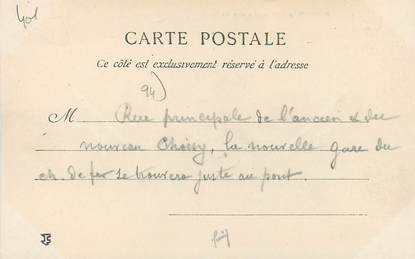 401
CARTE POSTALE
Ce côté est exclusivement réservé à l'adresse
94)
M Rue principale de l'ancien & du
nouveau Choisy, la nouvelle gare du
ch. de fer se trouvera juste au pont.